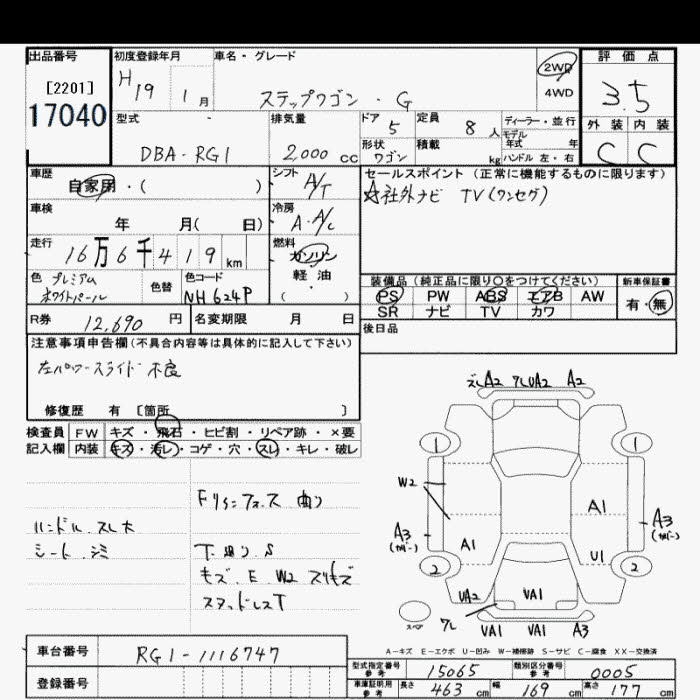 出品番号 初度登録年月 車名・グレード 評価点
[2201] H19 1月 ステップワゴン・G 2WD 3.5
17040 4WD
型式 排気量 ドア 5 定員 8人 ディーラー・並行 外装 内装
モデル
年式 年
DBA-RG1 2,000cc 形状 ワゴン 積載 kg ハンドル 左・右 C C
車歴 シフト セールスポイント (正常に機能するものに限ります)
自家用・( ) A/T ☆社外ナビ TV(ワンセグ)
車検 冷房
年 月( 日) A・A/C
走行 燃料
16万6千419km ガソリン
軽・油
( )
色 プレミアム 色替 色コード 装備品(純正品に限り○をつけてください) 新車保証書
ホワイトパール NH624P PS PW ABS エアB AW 有・無
SR ナビ TV カワ
R券 12,690円 名変期限 月 日 後日品
注意事項申告欄(不具合内容等は具体的に記入して下さい)
左パワースライド不良
修復歴 有 〔箇所 〕
検査員 FW キズ・飛石・ヒビ割・リペア跡・×要
記入欄 内装 キズ・汚レ・コゲ・穴・スレ・キレ・破レ
ズレA2 ワレUA2 A2
1 1
W2
A1
A3 A3
(カバー) (カバー)
A1 U1
2 2
UA2 VA1
ワレ
スペア VA1 VA1 A3
Fリィンフォース 曲リ
ハンドル スレ大
シート シミ T.曲リ.S
キズ.E.W2 スリキズ
スタッドレスT
A-キズ E-エクボ U-凹み W-補修跡 S-サビ C-腐食 XX-交換済
車台番号 RG1-1116747
登録番号
型式指定番号 参考 15065 類別区分番号 参考 0005
車庫証明用 参考 長さ 463cm 幅 169cm 高さ 177cm